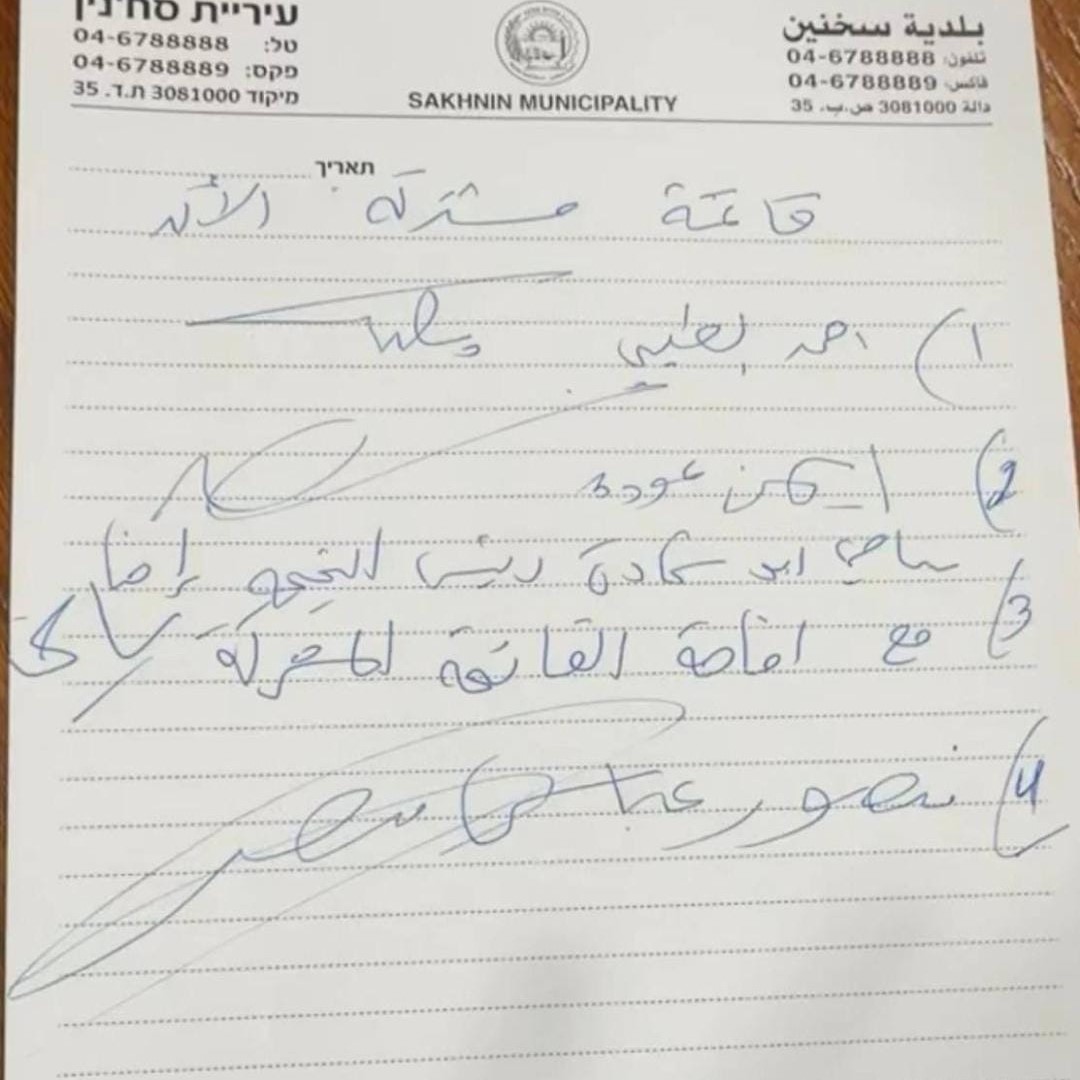 עיריית סח'נין
טל: 04-6788888
פקס: 04-6788889
מיקוד 3081000 ת.ד. 35
SAKHNIN MUNICIPALITY
بلدية سخنين
تلفون: 04-6788888
فاكس: 04-6788889
دالة 3081000 ص.ب. 35
תאריך
قائمة مشتركة الآن
1) احمد
2) ايمن عودة
سامي ابو شحادة رئيس التجمع
3) مع اقامة القائمة المشتركة
4) منصور عباس